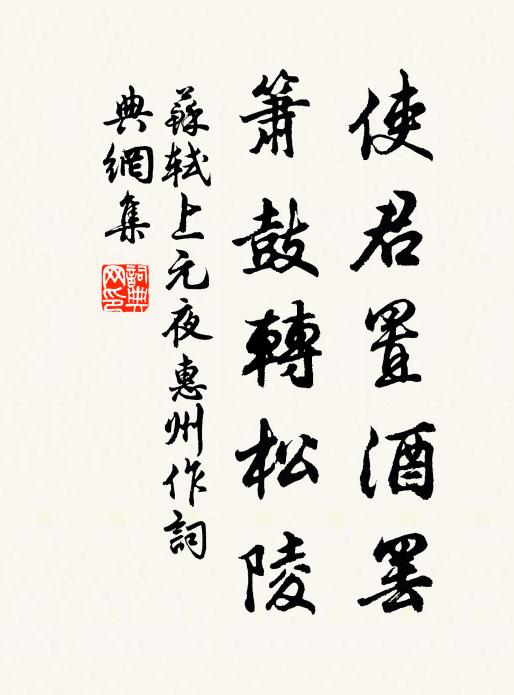 使君置酒罢
簫鼓轉松陵
蘇軾上元夜惠州作詞
典網集
詞典網印